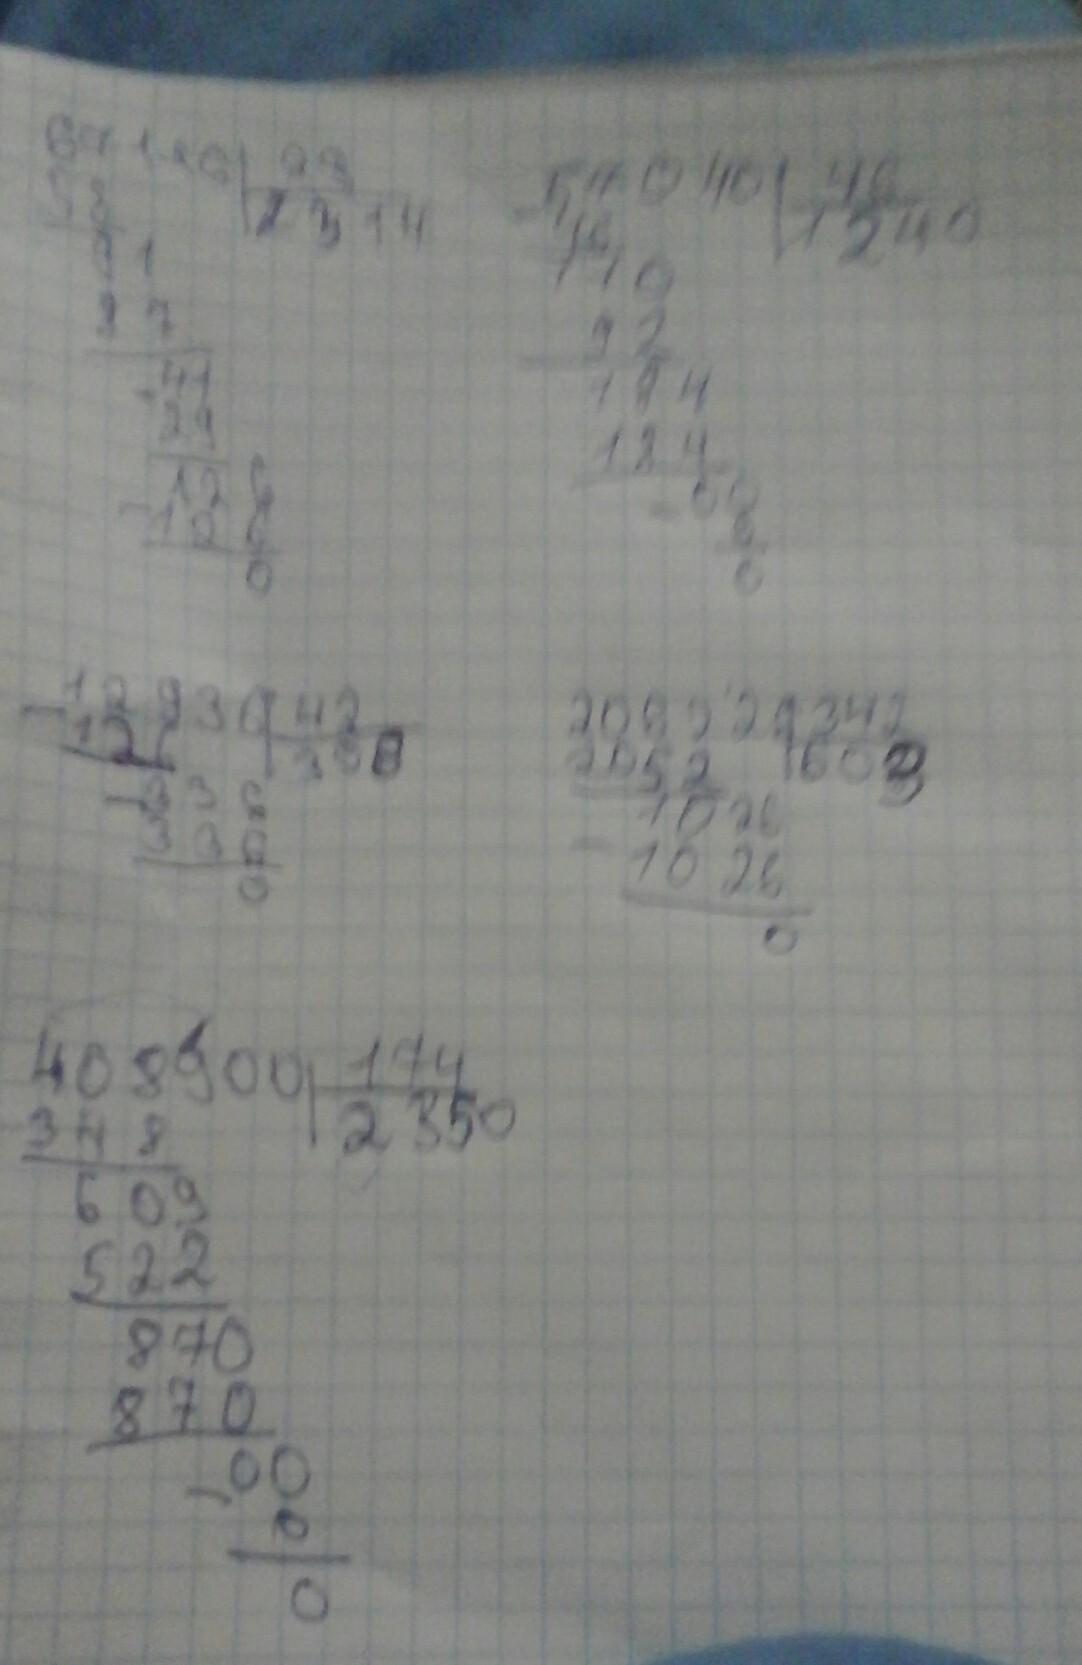 29
2314
58
91
87
41
29
126
126
0
57040 | 46
- 46 | 1240
110
92
184
184
- 00
0
0
- 12936 | 42
126 | 308
- 336
336
0
342
2052 | 603
1026
- 1026
0
408900 | 174
348 | 2350
609
522
870
870
- 00
0
0